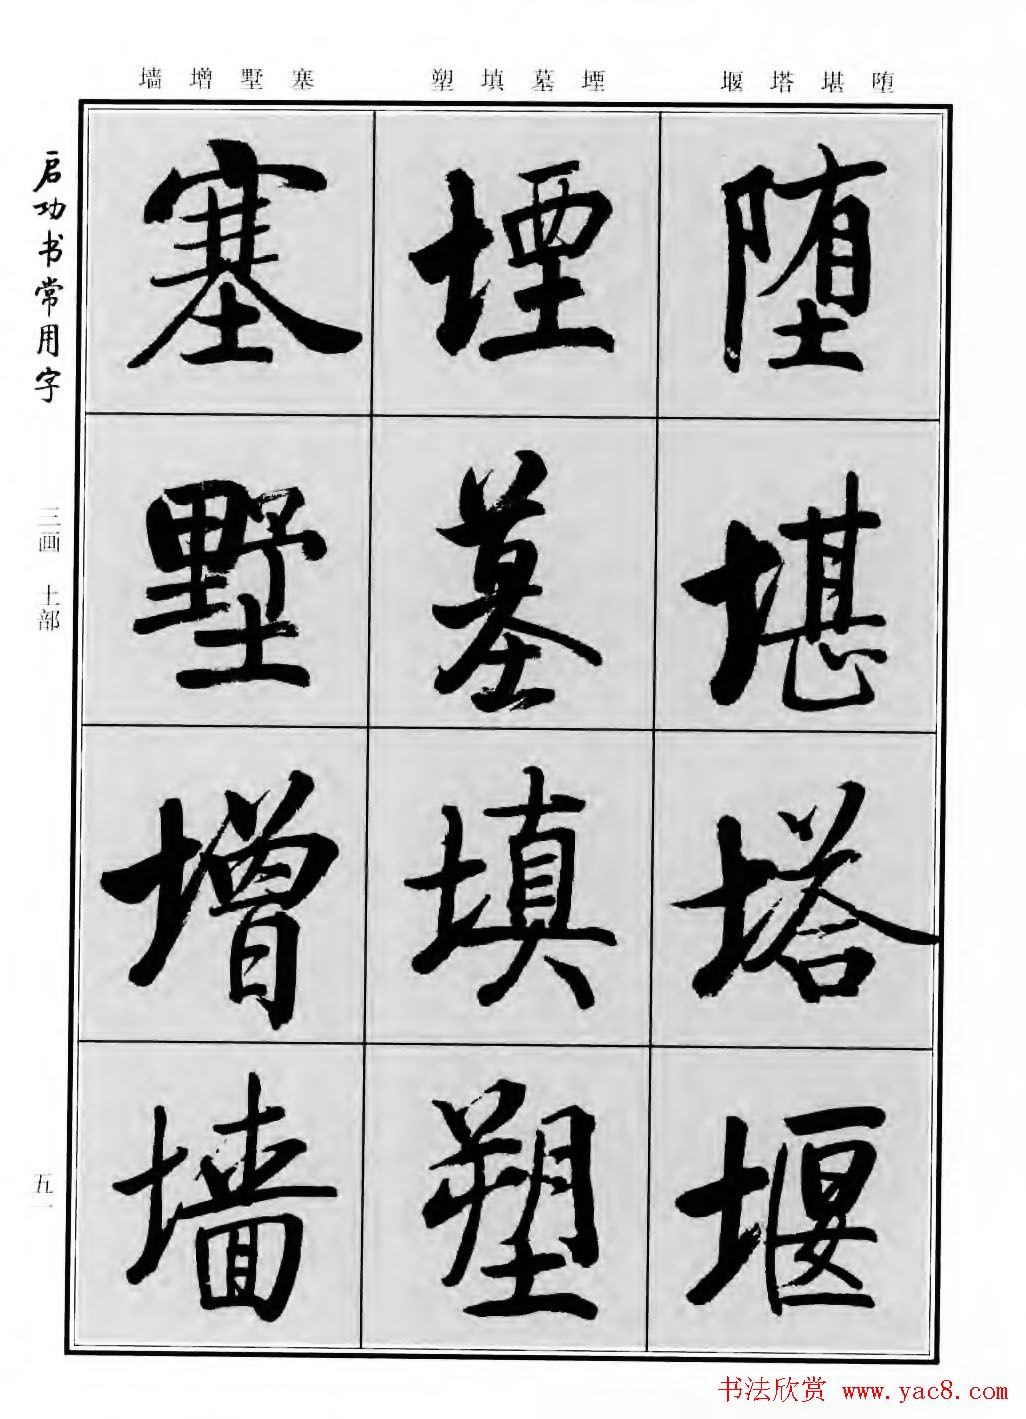 堕堪塔堰 堙墓填塑 塞墅增墙
堕堪塔堰
堙墓填塑
塞墅增墙
启功书常用字
三画 土部
五一
书法欣赏 www.yac8.com